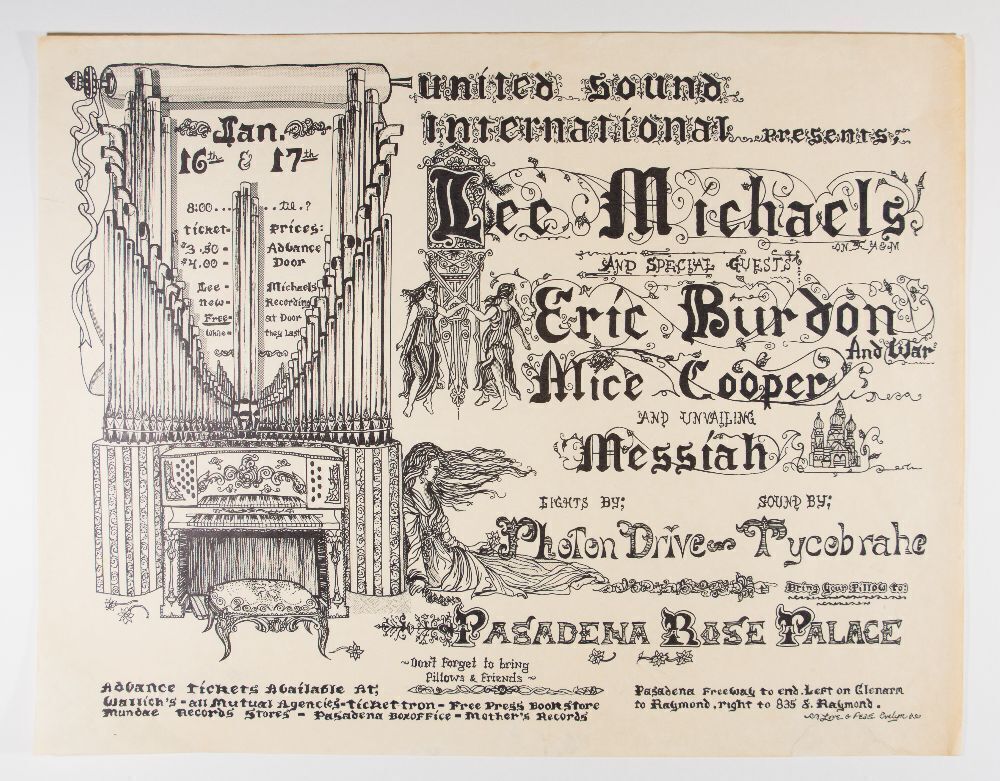 united sound
international presents;
Jan.
16th & 17th
8:00.... ..til.?
ticket- Prices:
$3.50 - Advance
$4.00 - Door
Lee - Michaels
new- Recording
Free- at Door
while- they Last
Lee Michaels
ON A&M
AND SPECIAL GUESTS
Eric Burdon
And War
Alice Cooper
AND UNVAILING
Messiah
LIGHTS BY; SOUND BY;
Photon Drive Tycobrahe
Bring your Pillow to:
PASADENA ROSE PALACE
~Don't Forget to bring
Pillows & Friends~
Advance Tickets Available At;
Wallich's - all Mutual Agencies - ticketron - Free Press Book Store
Mundae Records Stores - Pasadena Boxoffice - Mother's Records
Pasadena Freeway to end. Left on Glenarm
to Raymond, right to 835 S. Raymond.
Love & Peas Evelyn